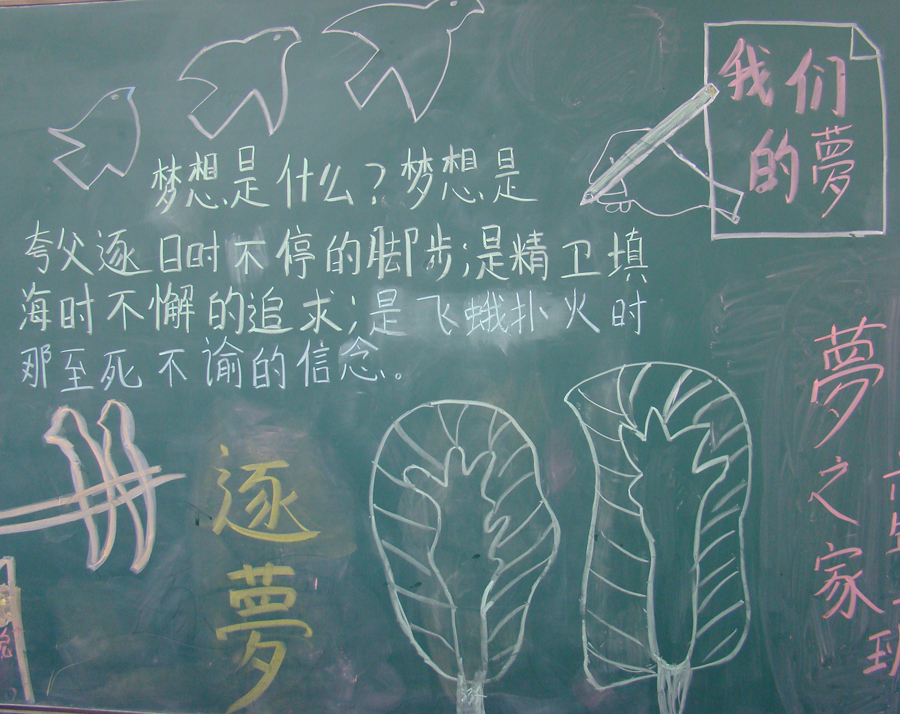 我们
的夢
梦想是什么?梦想是
夸父逐日时不停的脚步;是精卫填
海时不懈的追求;是飞蛾扑火时
那至死不谕的信念。
逐夢
夢之家
班